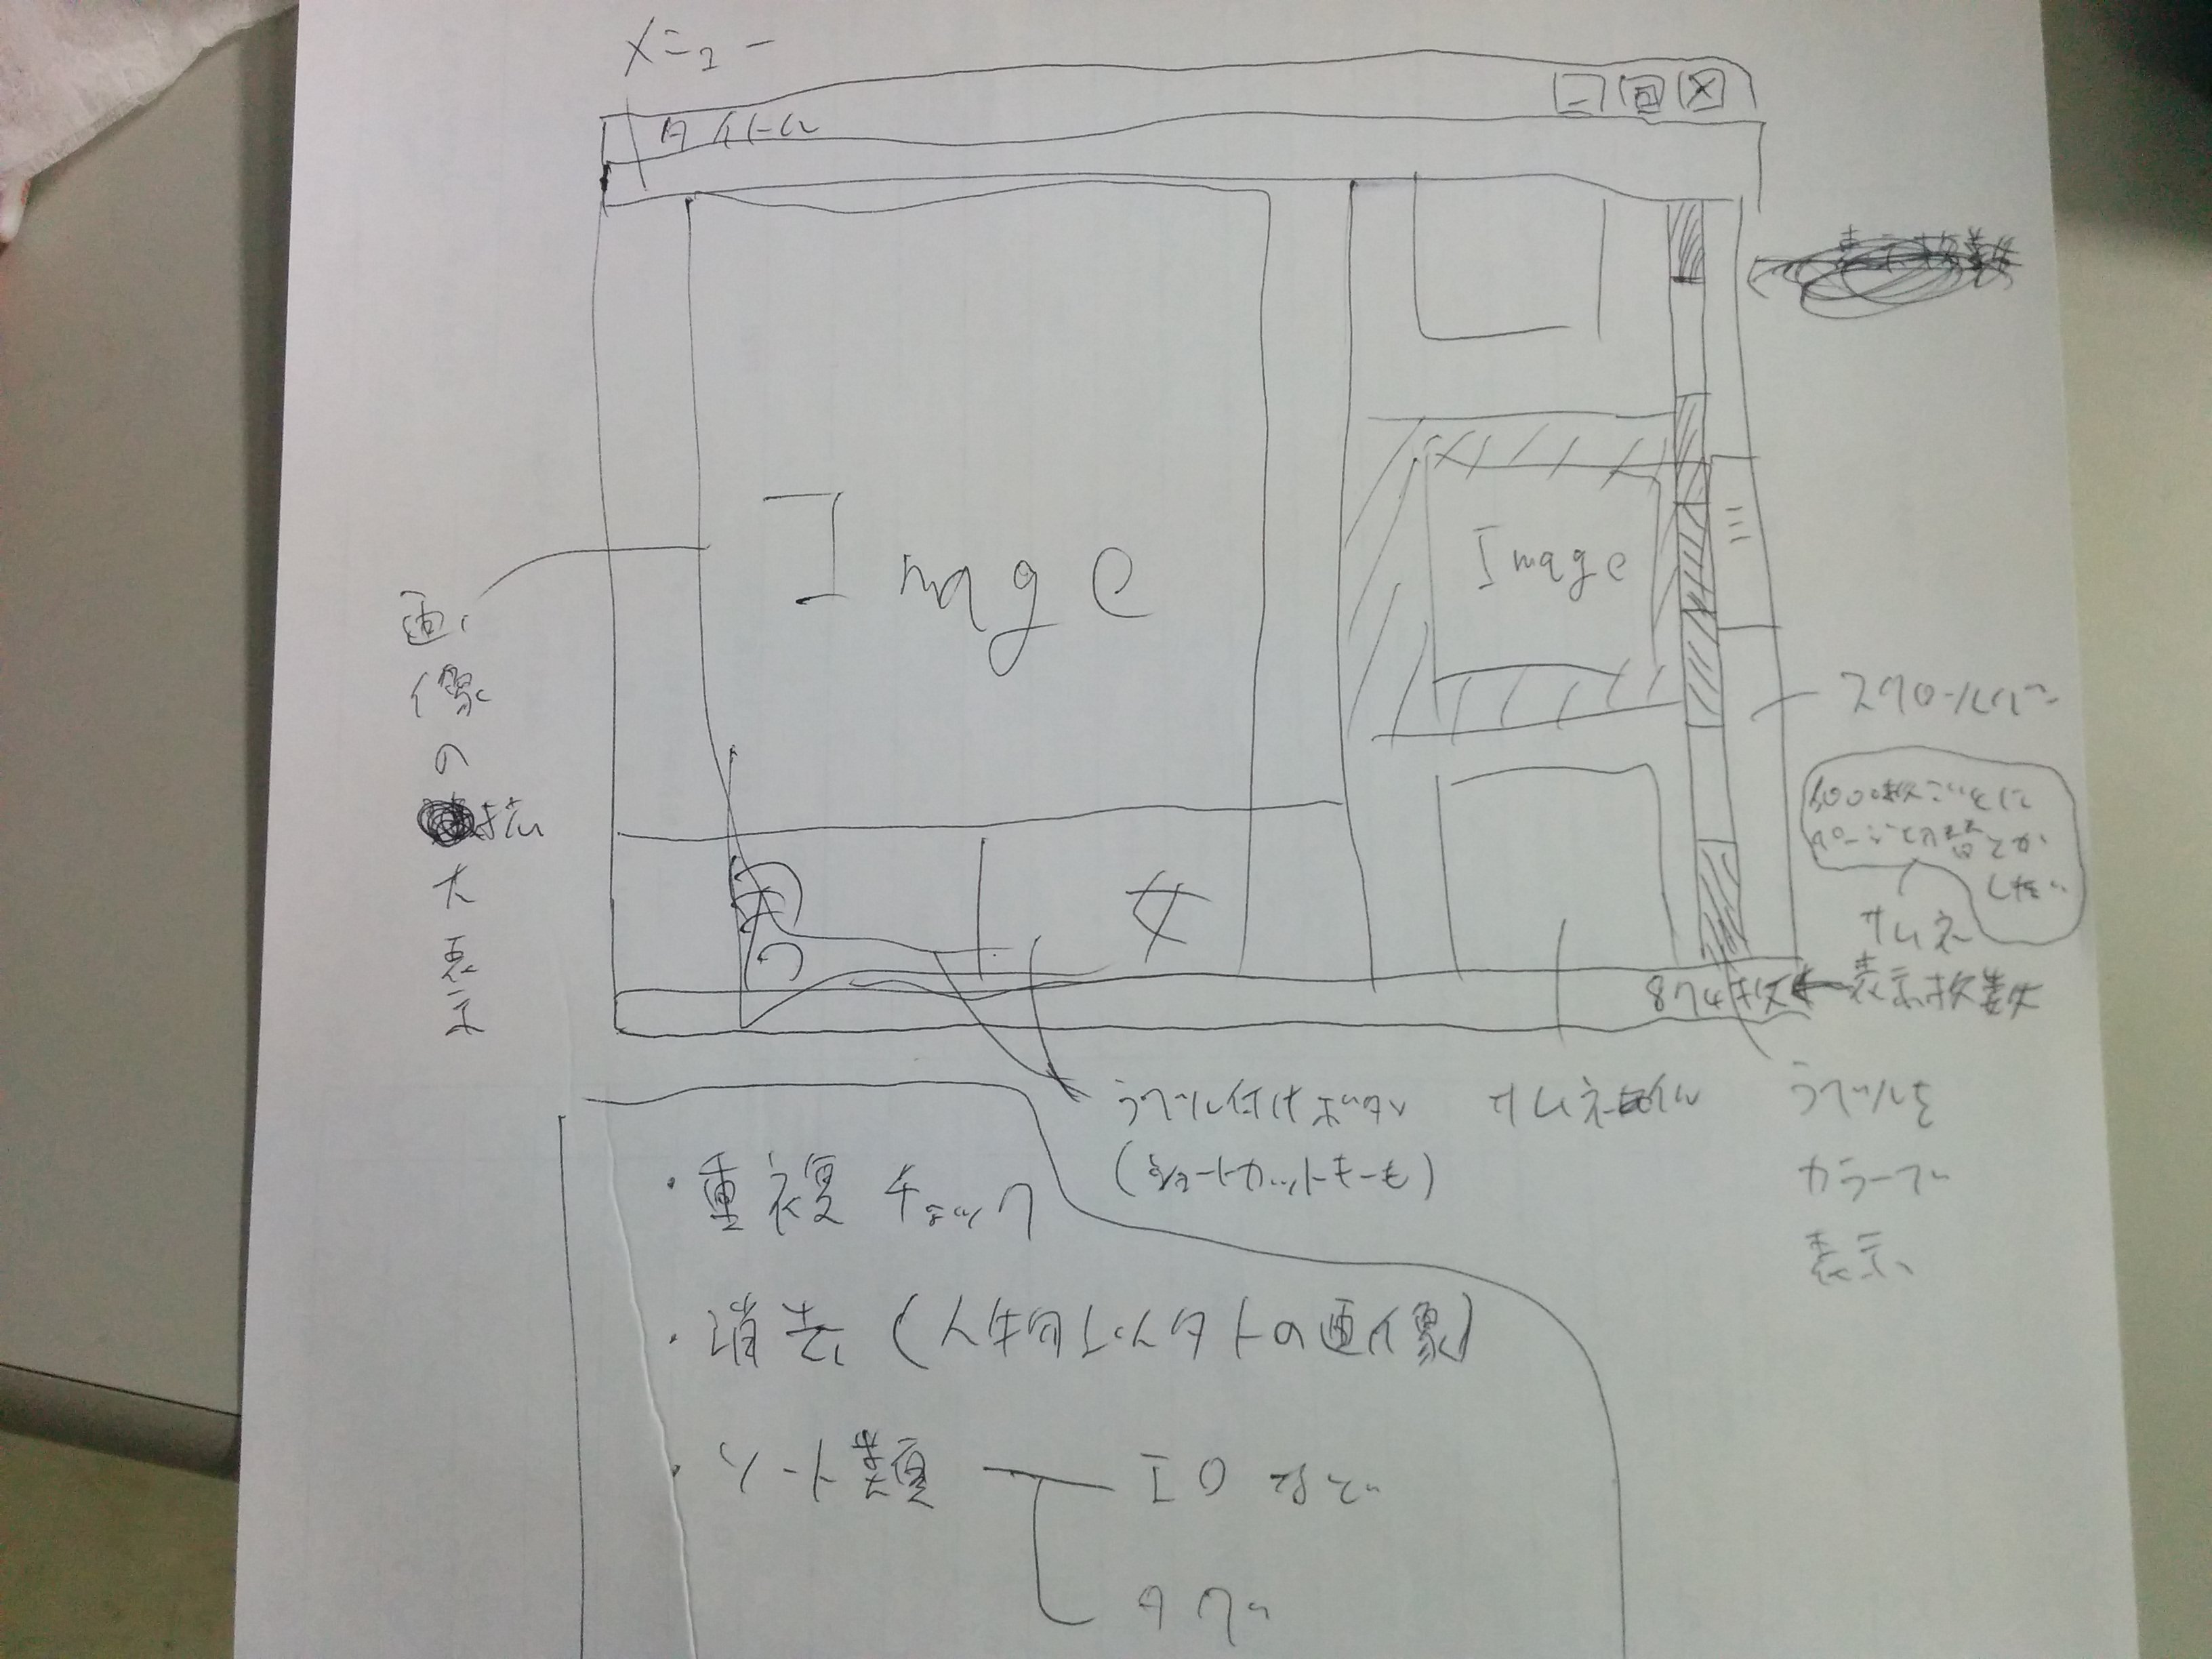 メニュー
タイトル
Image
Image
画像の拡大表示
スクロールバー
1000枚ごとに
ページ切替とか
したい
サムネ
表示枚数
874枚
女
ラベル付けボタン
(ショートカットキーも)
サムネイル
ラベルを
カラーで
表示
・重複チェック
・消去(人物以外の画像)
・ソート類
IDなど
タグ